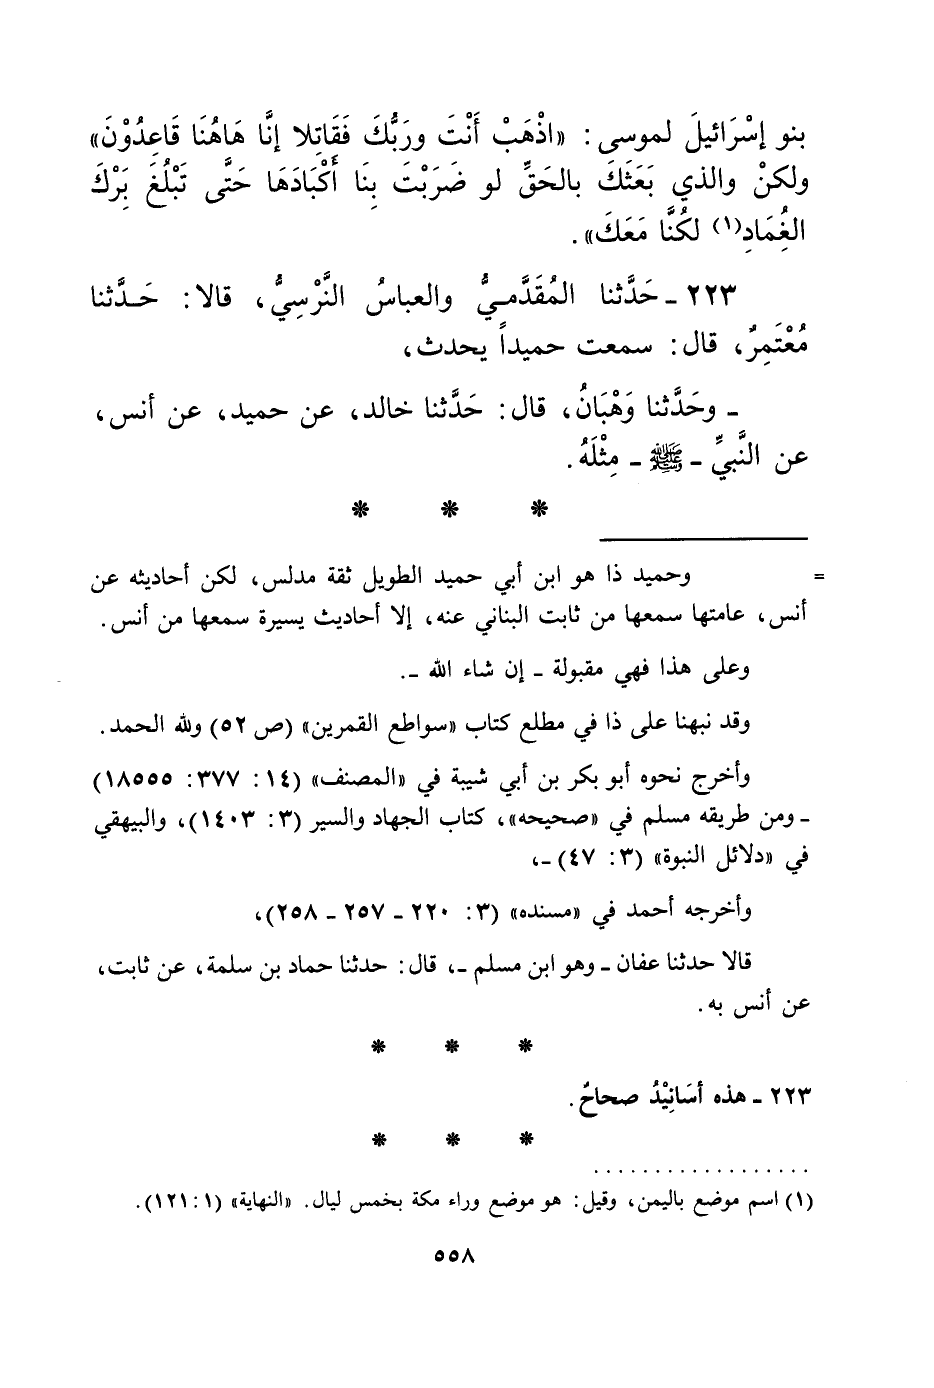 بنو إسْرَائيلَ لموسى: «اذْهَبْ أَنْتَ ورَبُّكَ فَقَاتِلا إنَّا هَاهُنَا قَاعِدُوْنَ»
ولكنْ والذي بَعَثَكَ بالحَقِّ لو ضَرَبْتَ بِنَا أَكْبَادَهَا حَتَّى تَبْلُغَ بَرْكَ
الغُِمَادِ(١) لكُنَّا مَعَكَ».
٢٢٣ ـ حَدَّثنا المُقَدَّمـيُّ والعباسُ النَّرْسِيُّ، قالا: حَـدَّثنا
مُعْتَمِرٌ، قال: سمعت حميداً يحدث،
ـ وحَدَّثنا وَهْبَانُ، قال: حَدَّثنا خالد، عن حميد، عن أنس،
عن النَّبيِّ ـ ﷺ ـ مِثْلَهُ.
* * *
= وحميد ذا هو ابن أبي حميد الطويل ثقة مدلس، لكن أحاديثه عن
أنس، عامتها سمعها من ثابت البناني عنه، إلا أحاديث يسيرة سمعها من أنس.
وعلى هذا فهي مقبولة ـ إن شاء الله ـ.
وقد نبهنا على ذا في مطلع كتاب «سواطع القمرين» (ص ٥٢) ولله الحمد.
وأخرج نحوه أبو بكر بن أبي شيبة في «المصنف» (١٤: ٣٧٧: ١٨٥٥٥)
ـ ومن طريقه مسلم في «صحيحه»، كتاب الجهاد والسير (٣: ١٤٠٣)، والبيهقي
في «دلائل النبوة» (٣: ٤٧) ـ،
وأخرجه أحمد في «مسنده» (٣: ٢٢٠ ـ ٢٥٧ ـ ٢٥٨)،
قالا حدثنا عفان ـ وهو ابن مسلم ـ، قال: حدثنا حماد بن سلمة، عن ثابت،
عن أنس به.
* * *
٢٢٣ ـ هذه أسَانِيْدُ صحاحٌ.
* * *
..................
(١) اسم موضع باليمن، وقيل: هو موضع وراء مكة بخمس ليال. «النهاية» (١: ١٢١).
٥٥٨